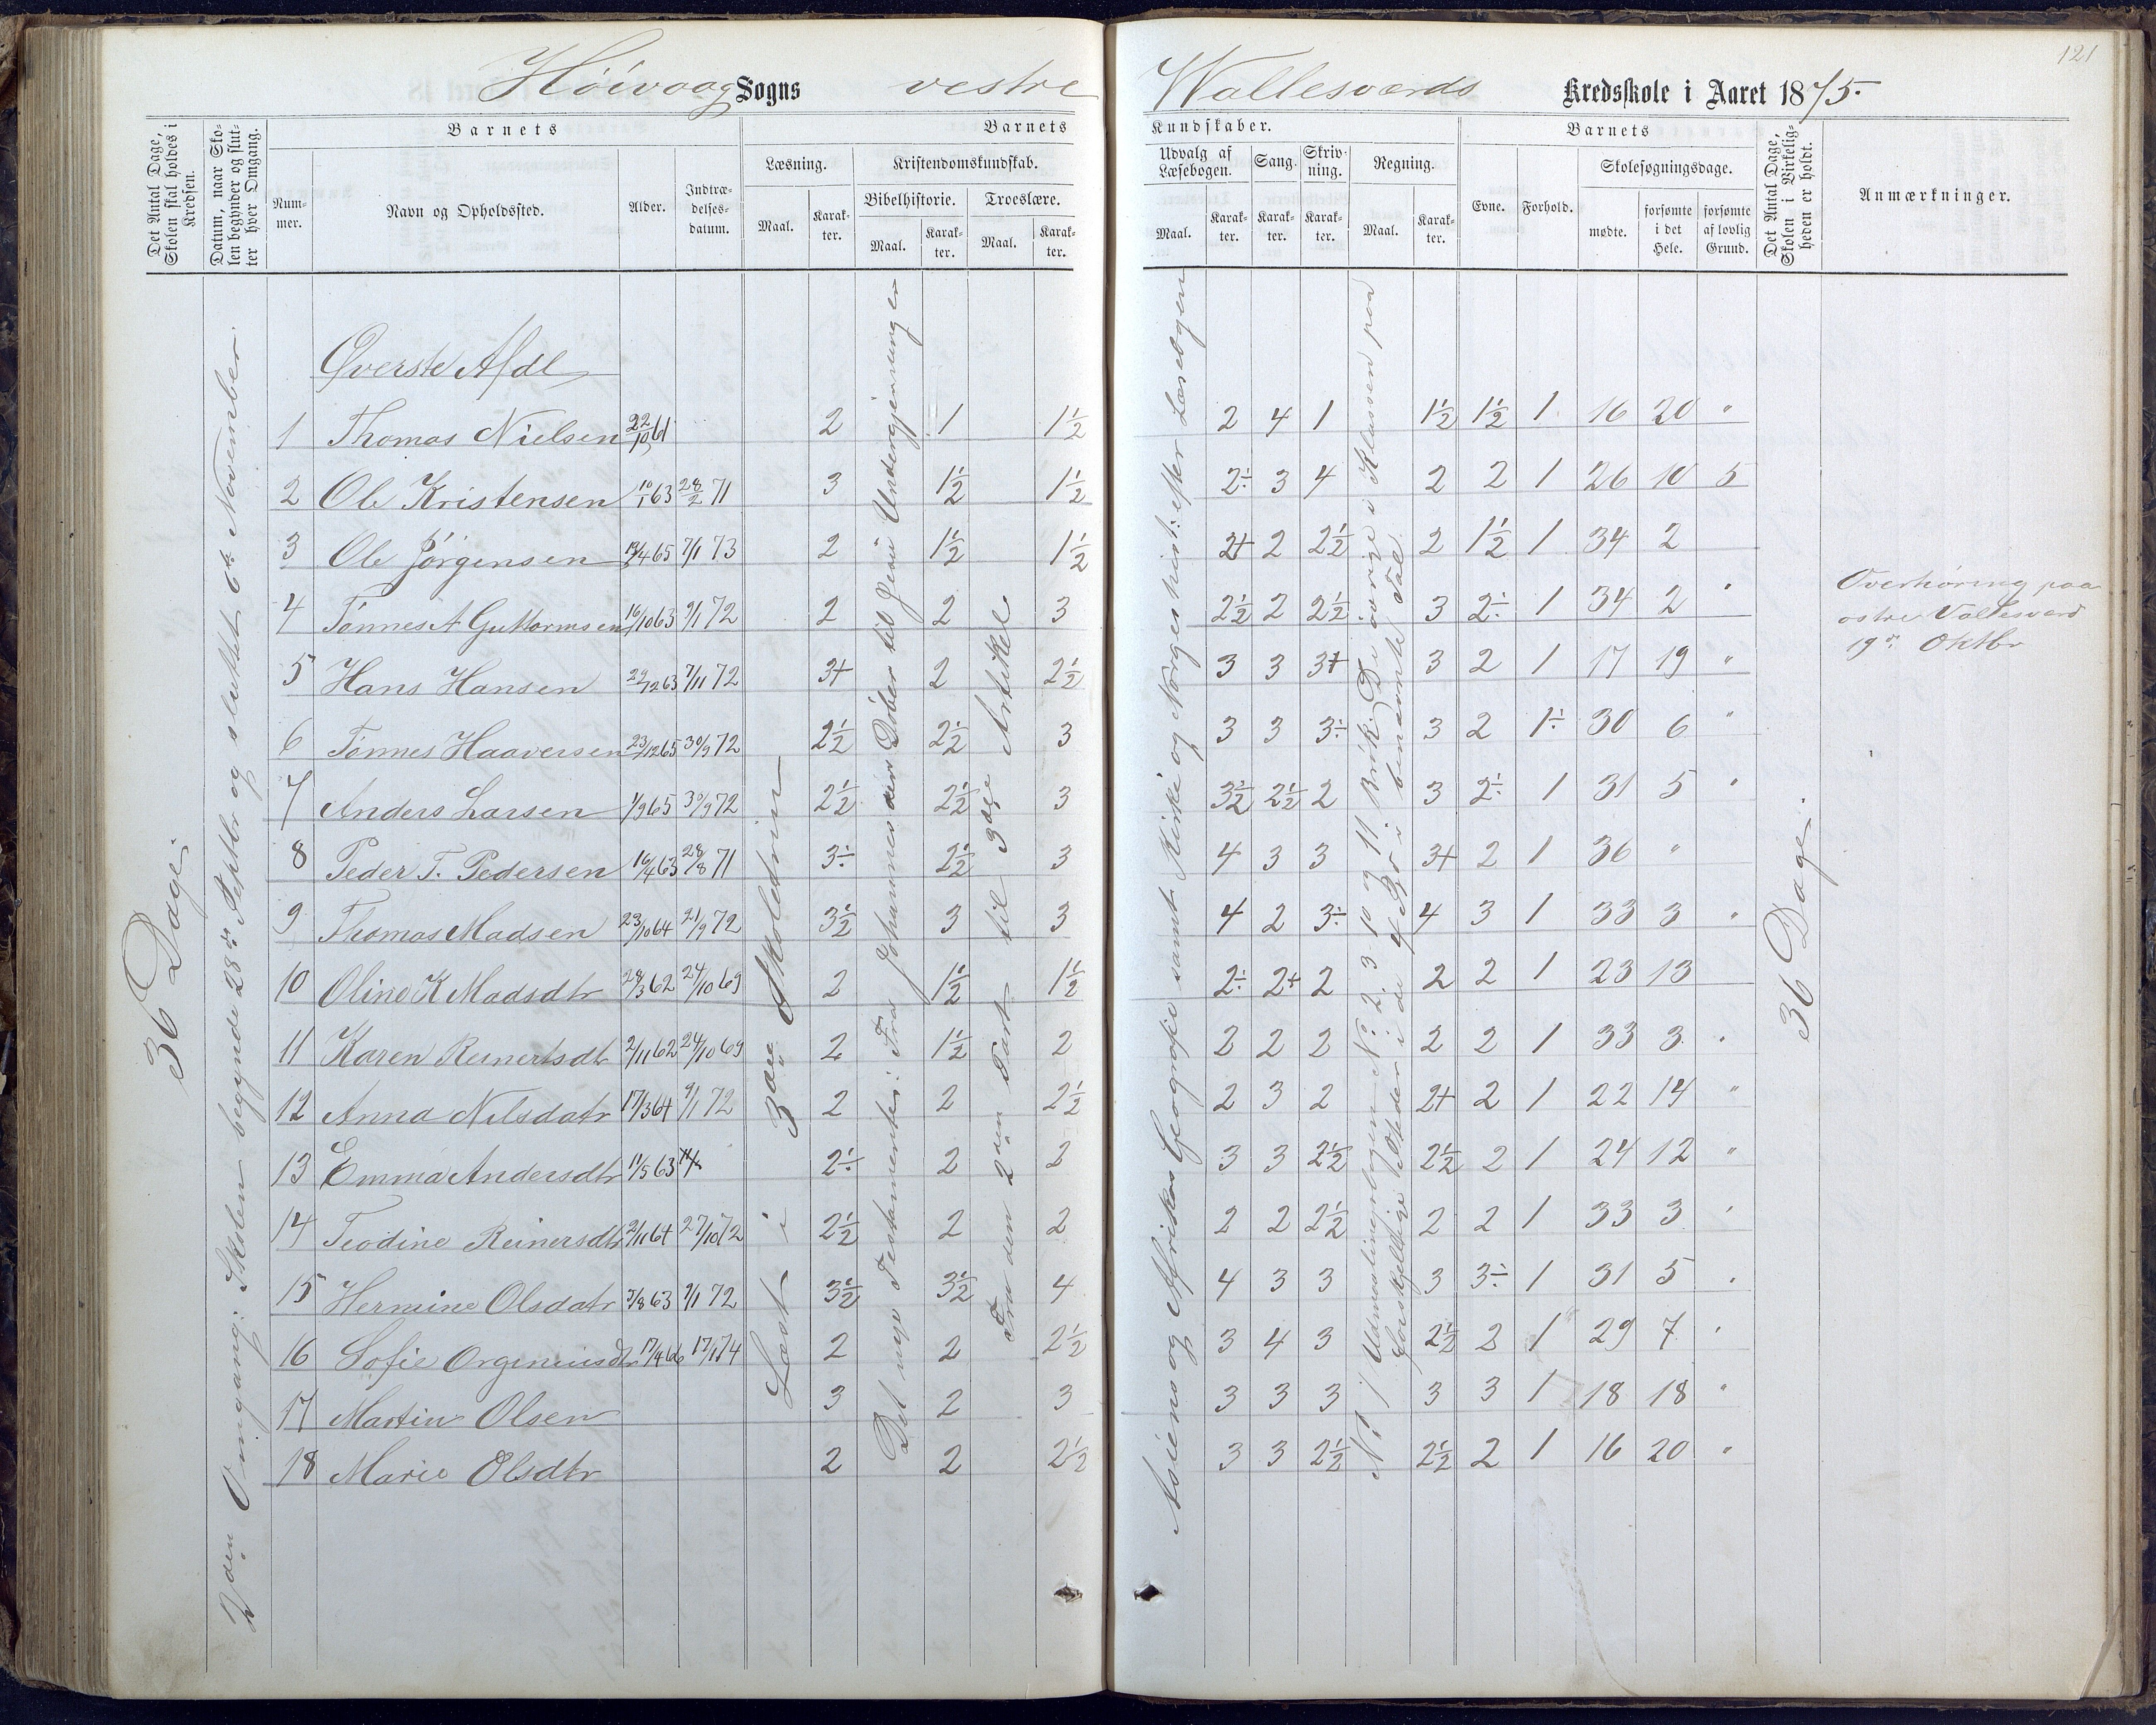 121
Höivaag Sogns vestre Wallesværds Kredsskole i Aaret 1875.
Det Antal Dage, Skolen skal holdes i Kredsen.
Datum, naar Skolen begynder og slutter hver Omgang.
Barnets
Nummer.
Navn og Opholdssted.
Alder.
Indtrædelsesdatum.
Barnets
Læsning.
Kristendomskundskab.
Bibelhistorie.
Troeslære.
Maal.
Karakter.
Maal.
Karakter.
Maal.
Karakter.
Kundskaber.
Udvalg af Læsebogen.
Sang.
Skrivning.
Regning.
Maal.
Karakter.
Karakter.
Karakter.
Maal.
Karakter.
Barnets
Evne.
Forhold.
Skolesøgningsdage.
mødte.
forsømte i det Hele.
forsømte af lovlig Grund.
Det Antal Dage, Skolen i Virkeligheden er holdt.
Anmærkninger.
36 Dage.
2den Omgang: Skolen begynde 28de Septbr og sluttet 6te November.
Øverste Afdl
1 Thomas Nielsen 22/10 61 2 1 1½ 2 4 1 1½ 1½ 1 16 20 "
2 Ole Kristensen 10/1 63 28/2 71 3 1½ 1½ 2÷ 3 4 2 2 1 26 10 5
3 Ole Jörgensen 13/4 65 7/1 73 2 1½ 1½ 2+ 2 2½ 2 1½ 1 34 2
4 Tönnes A Guttormsen 16/10 63 9/1 72 2 2 3 2½ 2 2½ 3 2÷ 1 34 2 "
5 Hans Hansen 29/12 63 7/11 72 3+ 2 2½ 3 3 3+ 3 2 1 17 19 "
6 Tönnes Haaversen 23/12 65 30/9 72 2½ 2½ 3 3 3 3÷ 3 2 1÷ 30 6 "
7 Anders Larsen 1/9 65 30/9 72 2½ 2½ 3 3½ 2½ 2 3 2÷ 1 31 5 "
8 Peder T. Pedersen 16/4 63 28/8 71 3÷ 2½ 3 4 3 3 3+ 2 1 36 "
9 Thomas Madsen 23/10 64 21/9 72 3½ 3 3 4 2 3÷ 4 3 1 33 3 "
10 Oline K Madsdtr 28/3 62 24/10 69 2 1½ 1½ 2÷ 2+ 2 2 2 1 23 13
11 Karen Reinertsdtr 2/11 62 24/10 69 2 1½ 2 2 2 2 2 2 1 33 3 "
12 Anna Nilsdatr 17/3 64 9/1 72 2 2 2½ 2 3 2 2+ 2 1 22 14 "
13 Emma Andersdtr 11/5 63 2÷ 2 2 3 3 2½ 2½ 2 1 24 12 "
14 Teodine Reinersdtr 2/11 64 27/10 72 2½ 2 2 2 2 2½ 2 2 1 33 3 "
15 Hermine Olsdatr 3/8 63 9/1 72 3½ 3½ 4 4 3 3 3 3÷ 1 31 5 "
16 Sofie 17/4 66 17/1 74 2 2 2½ 3 4 3 2½ 2 1 29 7 "
17 Martin Olsen 3 2 3 3 3 3 3 3 1 18 18 "
18 Marie Olsdtr 2 2 2½ 3 3 2½ 2½ 2 1 16 20 "
Læst i 3die Skoletrin
Det nye Testamente: Fra Johannes den Döber til Jesu Undergjerninger
Fra den 2den Part til 3die Artikel
Asiens og Afrikas Geografie samt Kirke og Norges hist: efter Læsebogen
No 1 i Udmaalingsbogen No 2. 3 10 og 11 Brök. De övrige i Klassen paa
forskjellige Steder i de 4 Sp. i benævnte Tal.
36 Dage.
Overhöring paa
ostre Vallesværd
19de Oktbr